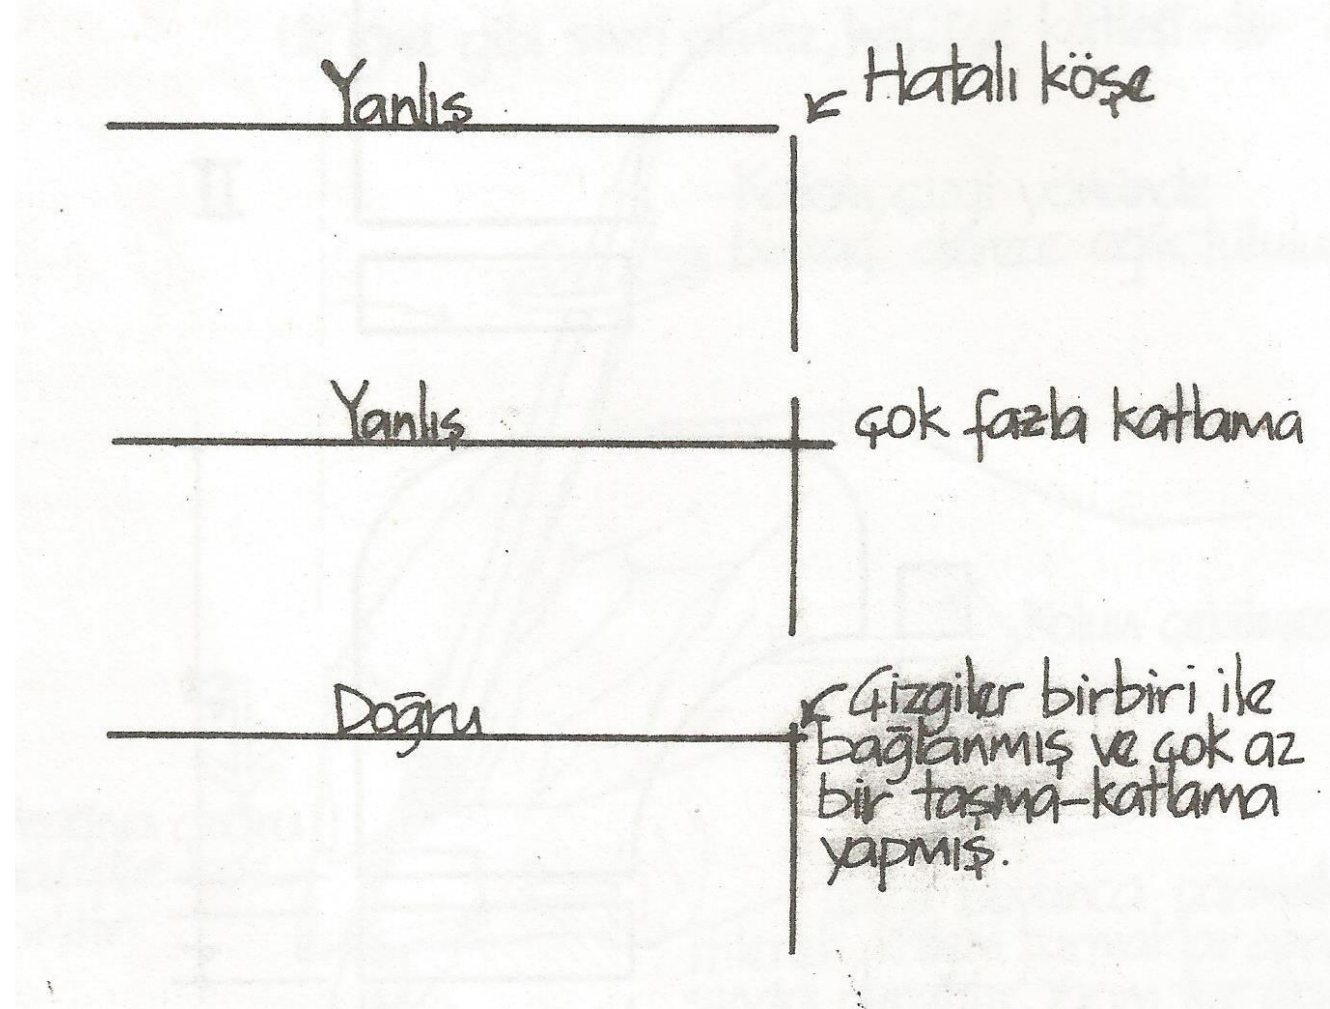 Yanlış
Hatalı köşe
Yanlış
çok fazla katlama
Doğru
Çizgiler birbiri ile
bağlanmış ve çok az
bir taşma-katlama
yapmış.